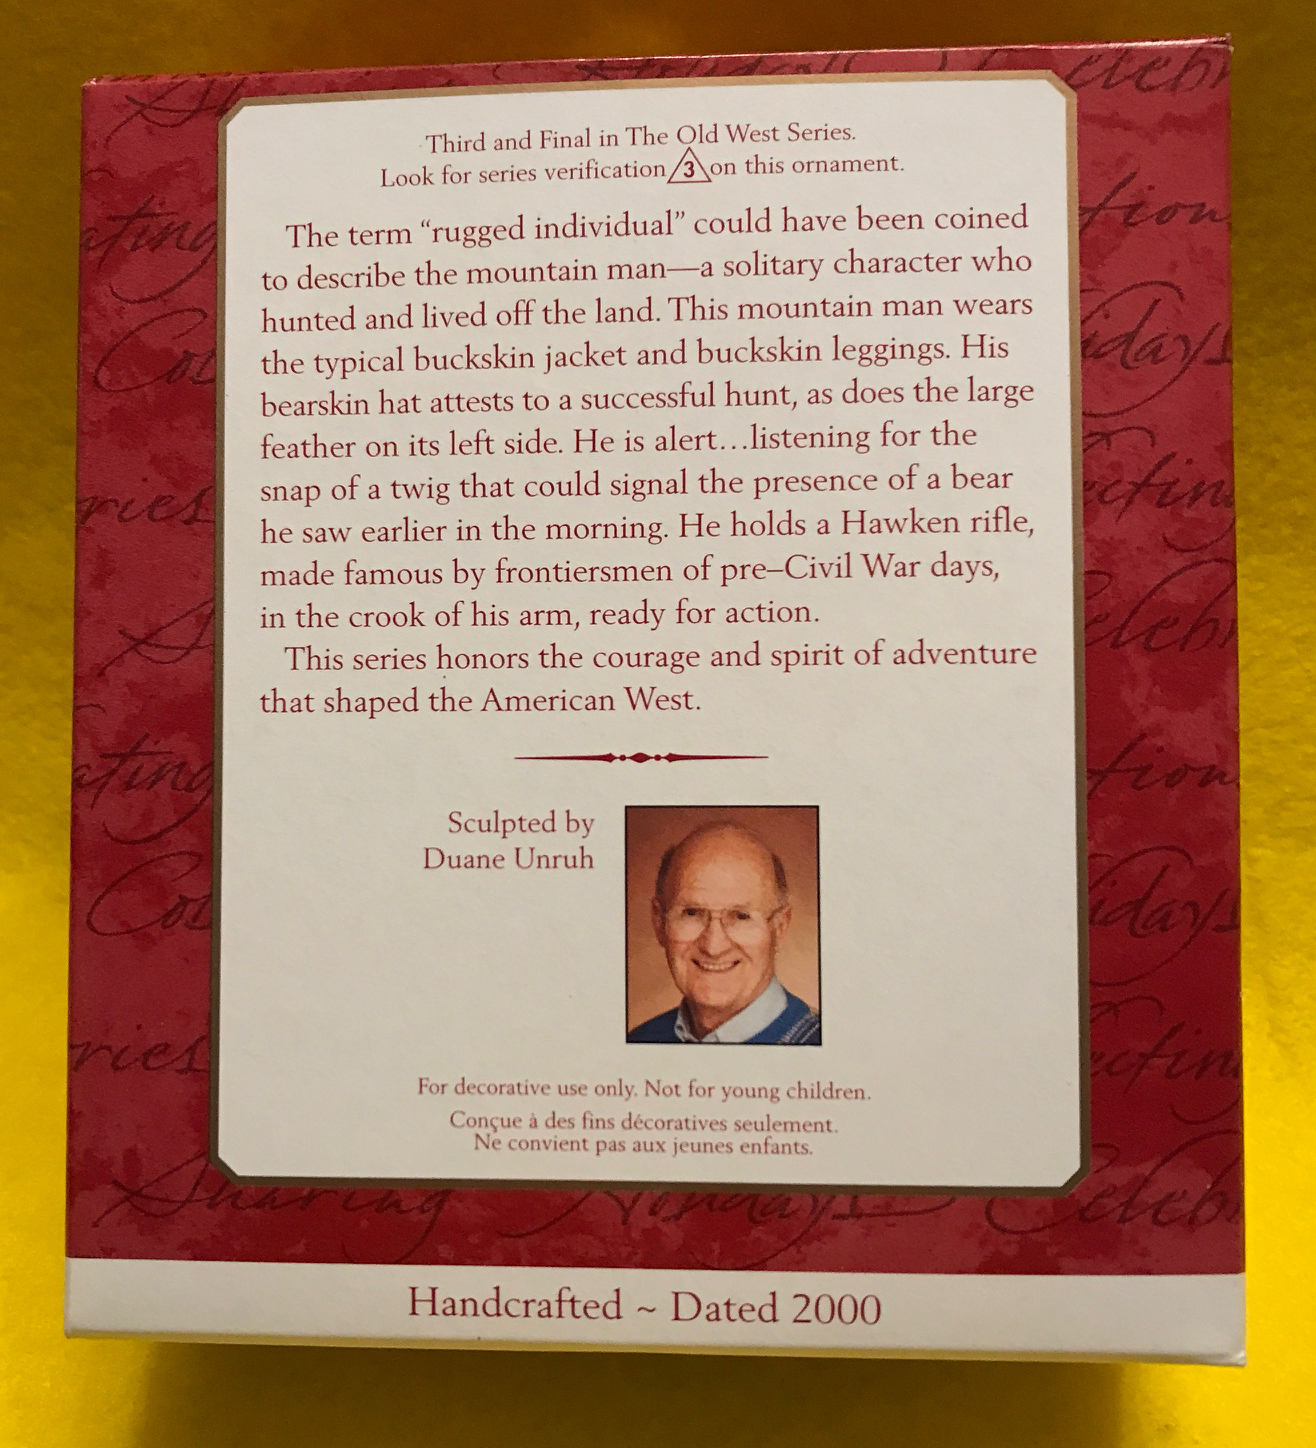 Third and Final in The Old West Series.
Look for series verification 3 on this ornament.
The term “rugged individual” could have been coined
to describe the mountain man—a solitary character who
hunted and lived off the land. This mountain man wears
the typical buckskin jacket and buckskin leggings. His
bearskin hat attests to a successful hunt, as does the large
feather on its left side. He is alert…listening for the
snap of a twig that could signal the presence of a bear
he saw earlier in the morning. He holds a Hawken rifle,
made famous by frontiersmen of pre–Civil War days,
in the crook of his arm, ready for action.
This series honors the courage and spirit of adventure
that shaped the American West.
Sculpted by
Duane Unruh
For decorative use only. Not for young children.
Conçue à des fins décoratives seulement.
Ne convient pas aux jeunes enfants.
Sharing Holidays Celebr
Handcrafted ~ Dated 2000